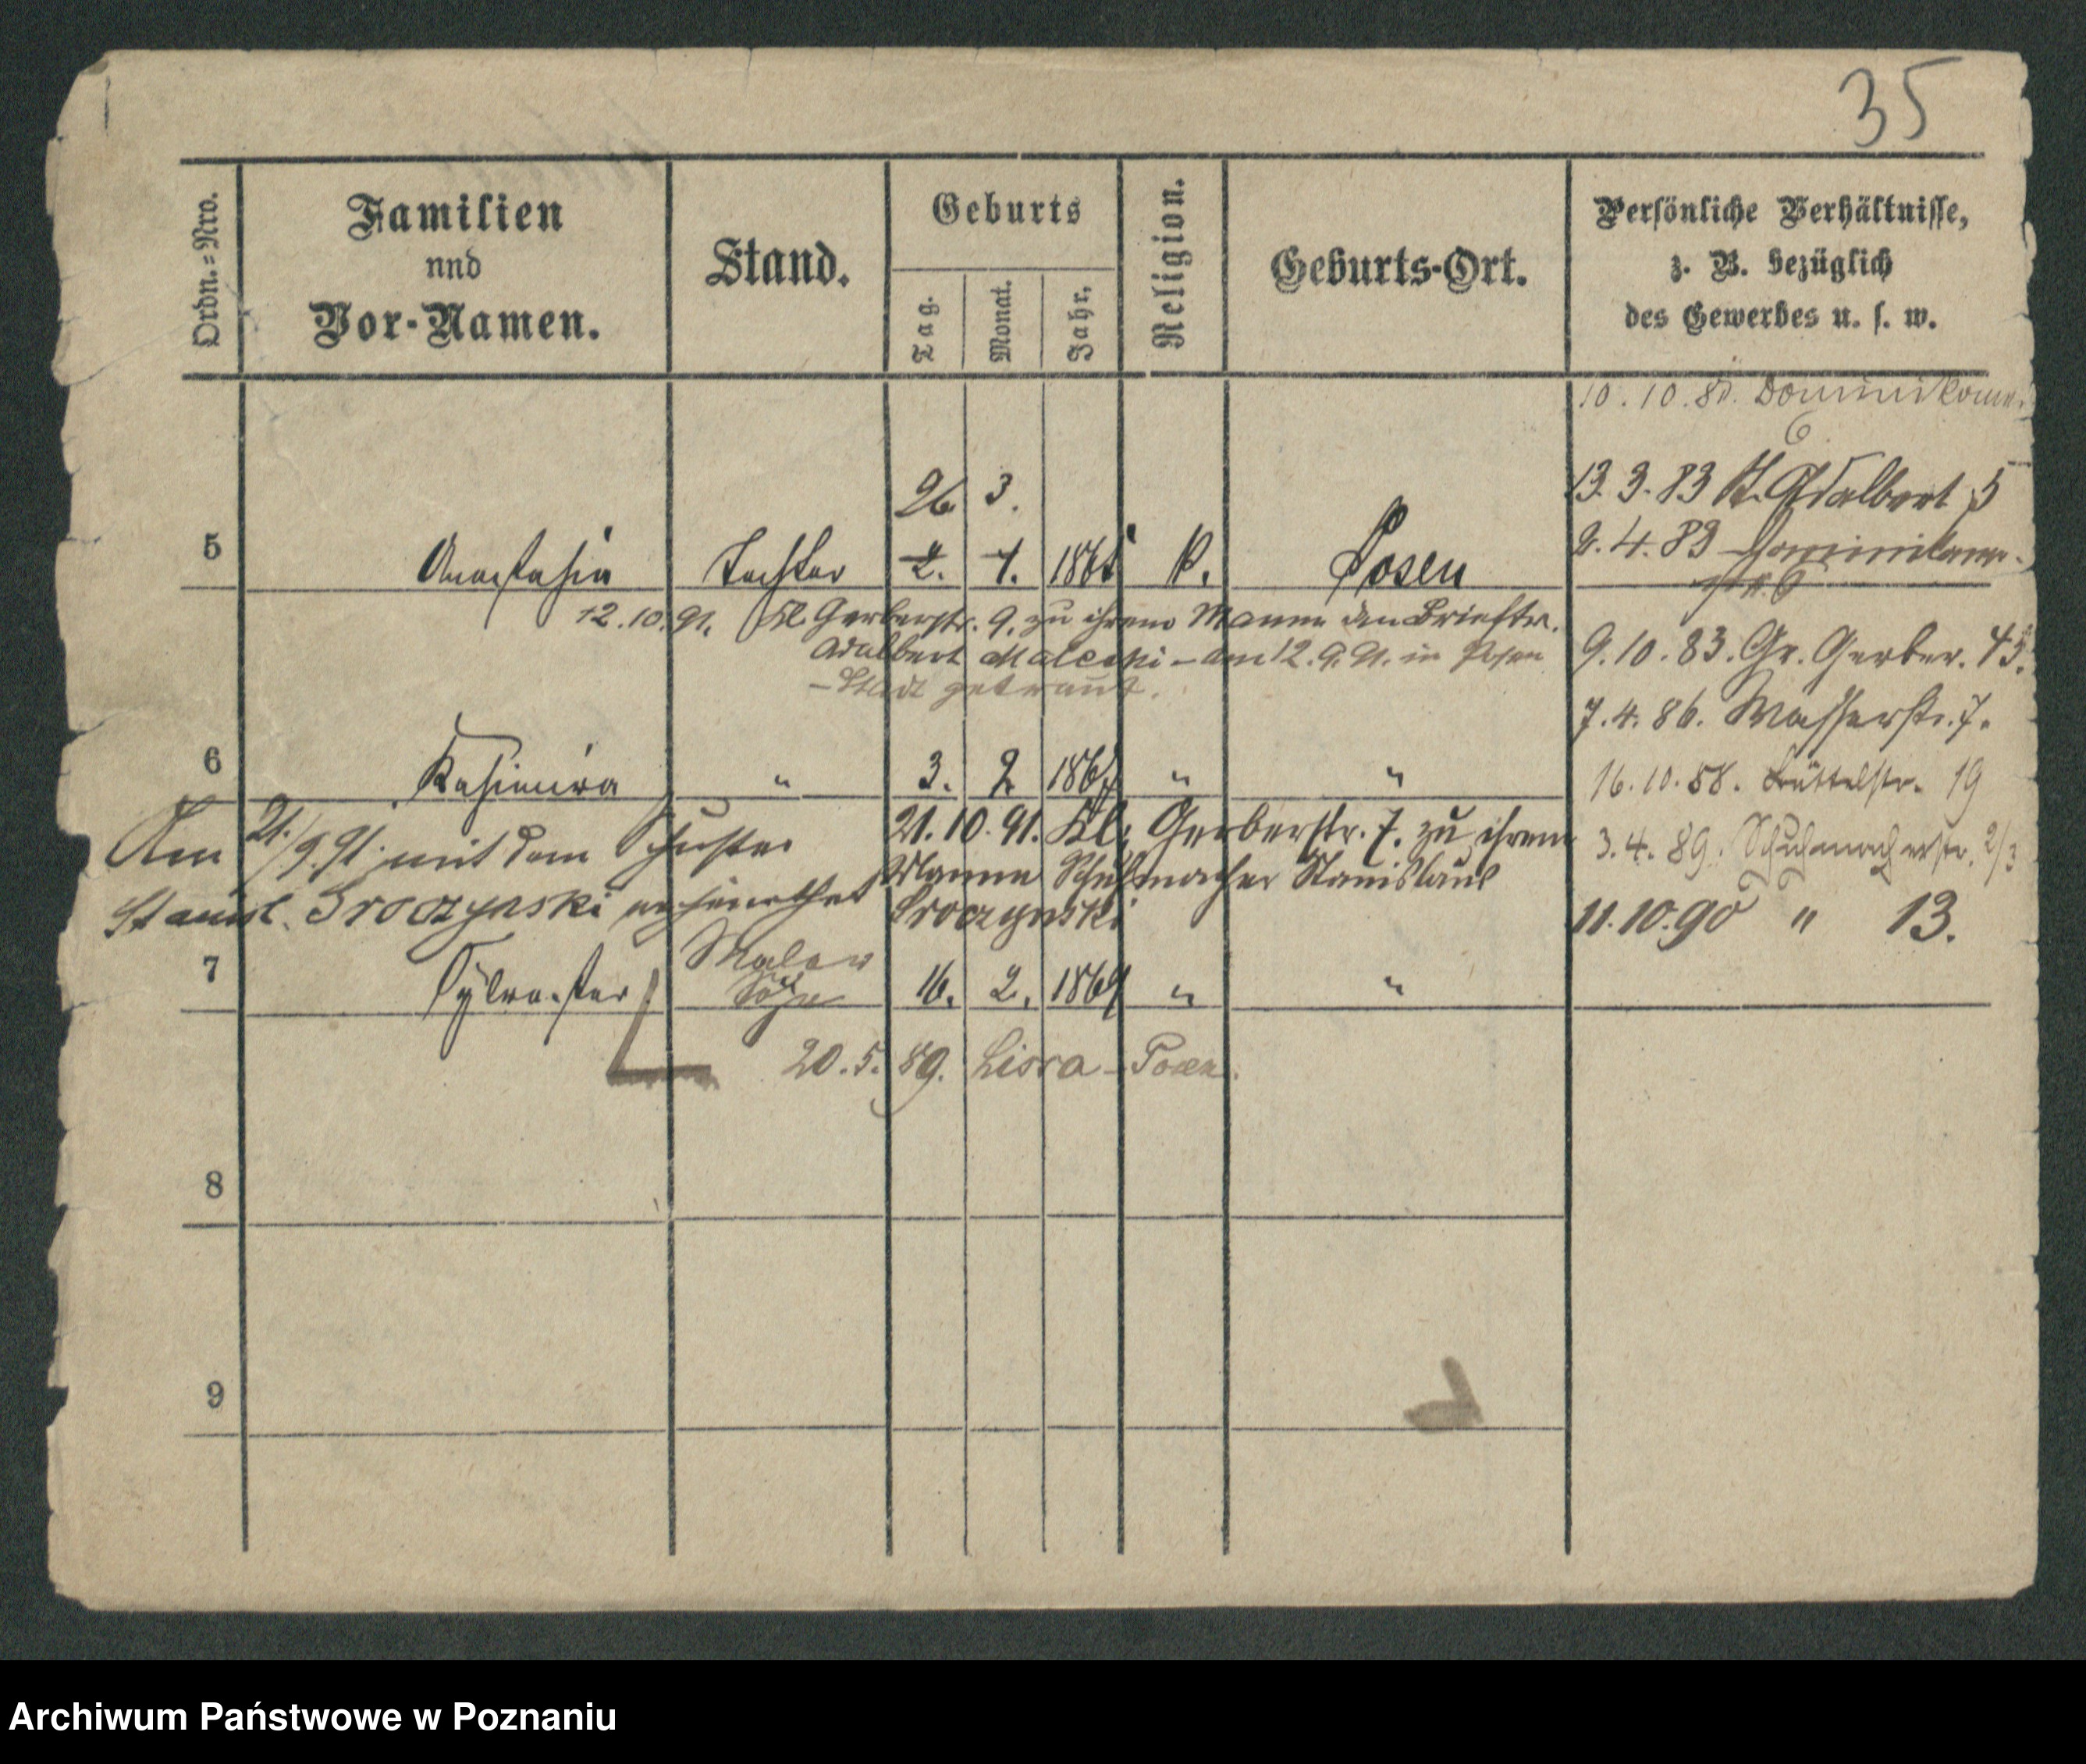 35
Ordn.=Nro.
Familien
nnd
Vor-Namen.
Stand.
Geburts
Tag.
Monat.
Jahr.
Religion.
Geburts-Ort.
Persönliche Verhältnisse,
z. B. bezüglich
des Gewerbes u. s. w.
10. 10. Dominikaner
6
13. 3. 83 St. Adalbert 5
26. 3.
5 Anastasia Tochter 2. 1. 1865 K. Posen
2. 4. 83 Dominikaner-
str. 6
12. 10. 91. Kl. Gerberstr. 9. zu ihrem Manne den Brieftr.
Adalbert Malecki – am 12. 9. 91. in Posen
– Stadt getraut.
9. 10. 83. Gr. Gerber. 43.
7. 4. 86. Wasserstr. 7.
6 Kasimira " 3. 2 1867 " "
16. 10. 88. Büttelstr. 19
Am 21./9. 91. mit dem Schuster
Stanisl. Sroczynski verheirathet
21. 10. 91. Kl. Gerberstr. 7. zu ihrem
Manne Schuhmacher Stanislaus
Sroczynski
3. 4. 89. Schuhmacherstr. 2/3
11. 10. 90 " 13.
Maler
7 Sylvester Sohn 16. 2. 1869 " "
20. 5. 89. Lissa - Posen.
8
9
Archiwum Państwowe w Poznaniu